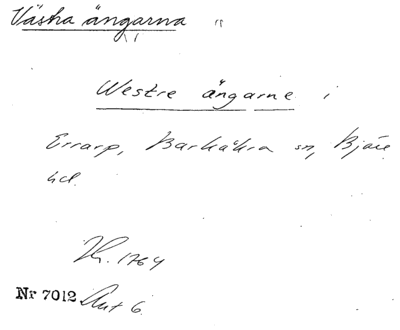 Västra ängarna
Westre ängarne i
Errarp, Barkåkra sn, Bjäre
hd.
1764
Nr 7012 Akt 6.